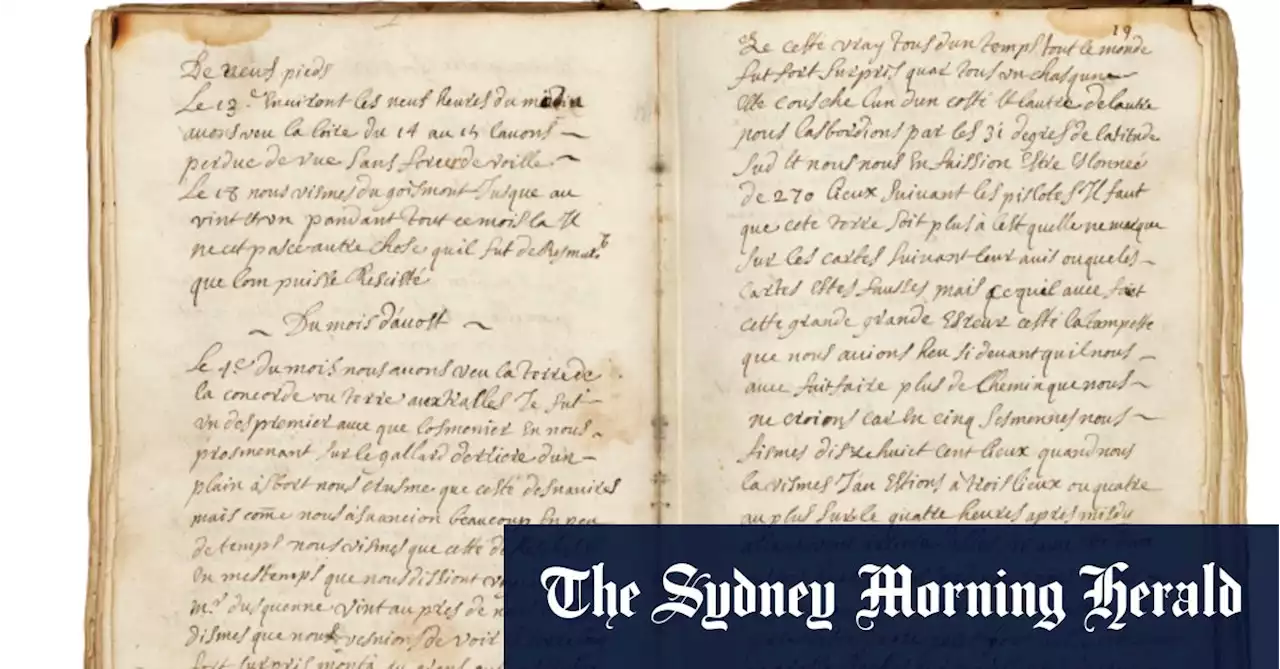 De neuf pieds
Le 13.e Environt les neuf heures du matin
avons veu la loire du 14 au 15 lavons
perdue de vue sans forcer de voille.
Le 18 nous vismes du goismont Jusque au
vint et un pandant tout ce mois la Il
ne cet passé autre chose quil fut de Resmar
que lom puisse Rescitté
Du mois d'auost
Le 4e du mois nous avons veu la terre de
la concorde ou terre auxtralles Je fut
un des premier avec que losmonier En nous
prosmenant sur le gallard derriere d'un
plain asbort nous crusme que cesté des navires
mais comē nous asvancion beaucoup En peu
de temps nous vismes que cette
En mestemps que nous dissiont
mr dusquenne vint au pres de n
dismes que nous vesnions de voir
fort surpris monta
19
Ze cesté vray tous dun temps tout le monde
fut fort surpris quar tous un chasqune
elle cousche lun dun costé et lautre de lautre
nous lasbordions par les 31 degres de latitude
sud et nous nous En faission Estre Eslonneé
de 270 lieux suivant les pillotes Il faut
que cete terre soit plus à lest quelle ne marque
sur les cartes suivant leur avis ou que les
cartes Estes fausses mais ce quil avec fait
cette grande grande Esreur cesté la tampeste
que nous avions heu si devant quil nous
avec fait faire plus de Chemin que nous
ne croions car En cinq sesmennes nous
fismes disxe huiet cent lieux quand nous
la vismes Jan Estions à trois lieux ou quatre
au plus sur le quatre heures apres midy
The Sydney Morning Herald